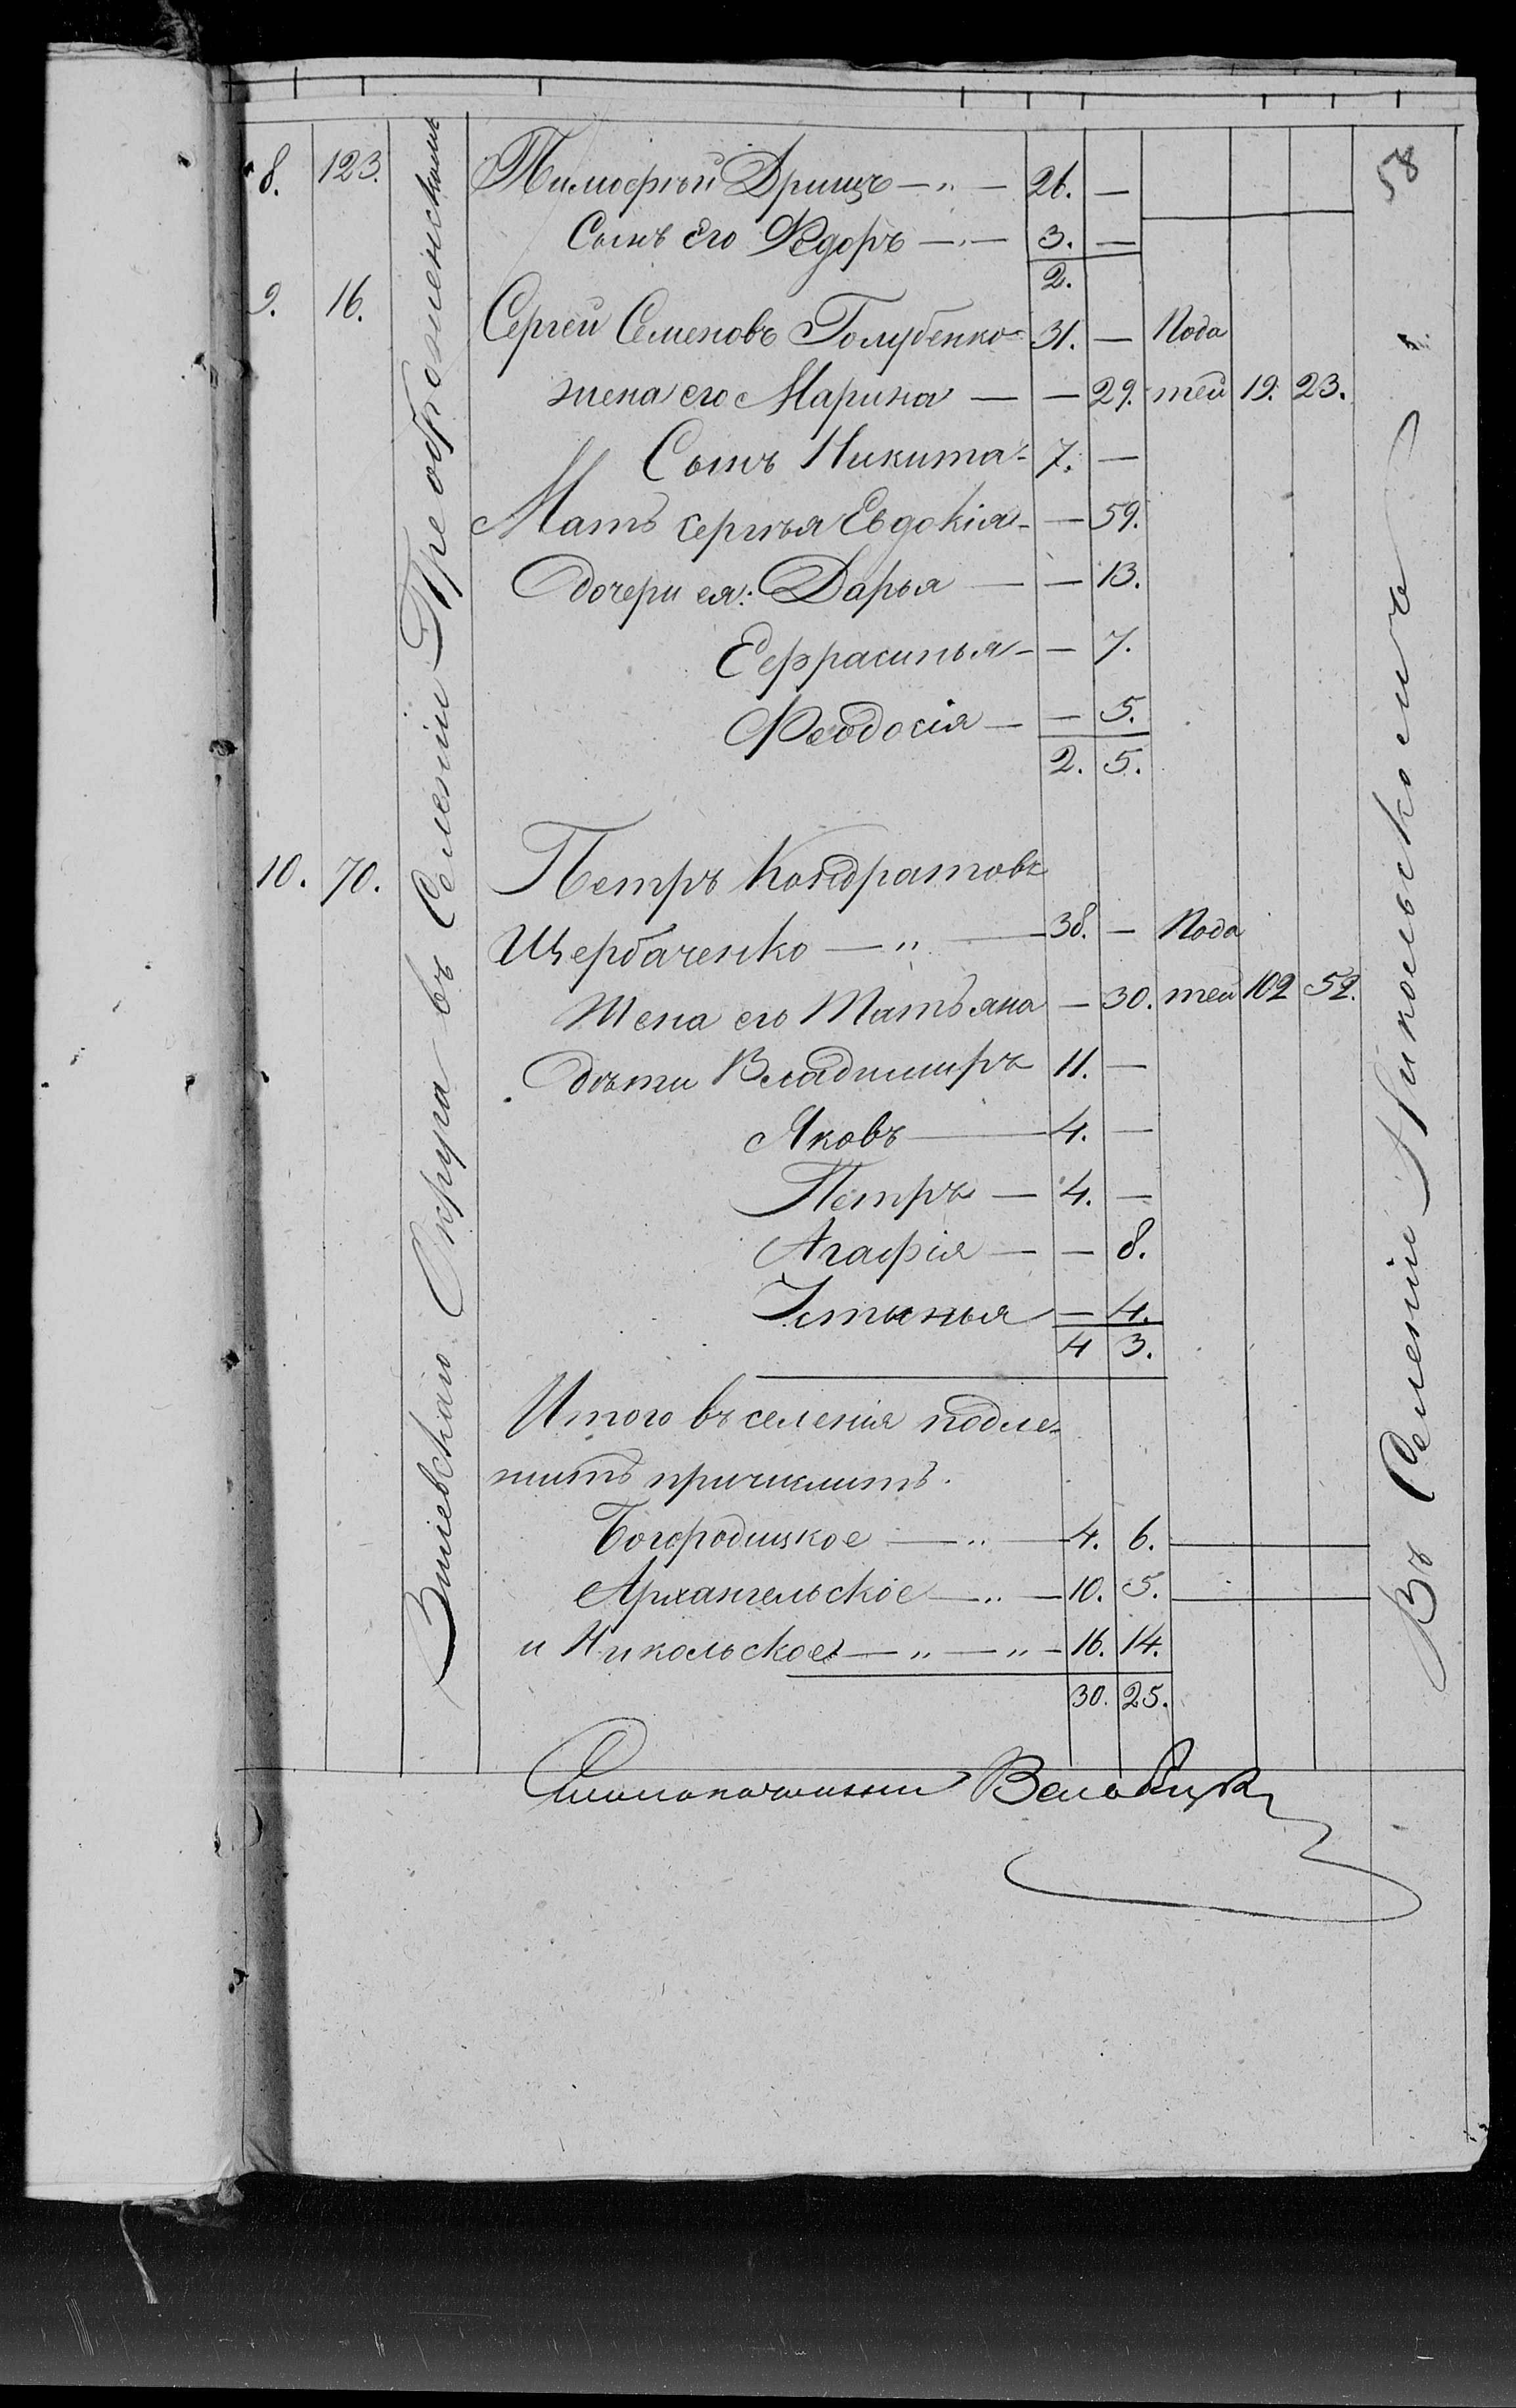 58
Змiевскаго Округа въ Селенiи Преображенскомъ
8. 123. Тимофѣй Дрищъ — „ — 26. —
Сынъ его Ѳедоръ — „ — 3. —
2.
9. 16. Сергей Семеновъ Голубенко 31. — Пода
жена его Марина — — 29. тей 19. 23.
Сынъ Никита - 7. —
Мать сергѣя Евдокiя - — 59.
дочери ея: Дарья — — 13.
Ефрасинья - — 7.
Ѳеодосiя — — 5.
2. 5.
10. 70. Петръ Кондратовъ
Щербаченко — „ — 38. — Пода
Жена его Татьяна — 30. тей 102 52.
дѣти Владимиръ 11. —
Яковъ — 4. —
Петръ — 4. —
Агафiя — — 8.
Устинья — 4.
4 3.
Итого въ селенiя подле-
житъ причислить.
Богородицкое — „ — 4. 6.
Архангельское — „ — 10. 5.
и Никольское — „ — „ — 16. 14.
30. 25.
Въ Селенiи Никольскомъ